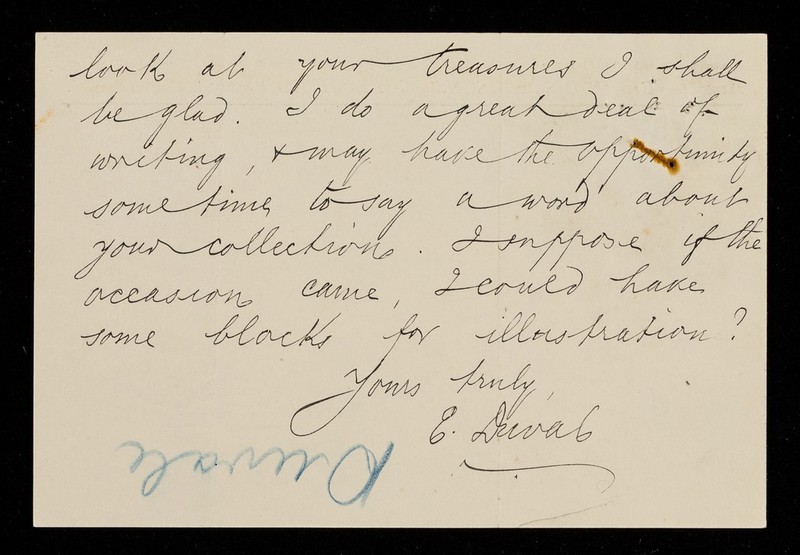 look at your treasures I shall
be glad. I do a great deal of
writing, & may have the opportunity
some time to say a word about
your collections. I suppose if the
occasion came, I could have
some blocks for illustration?
Yours truly,
E. Duval